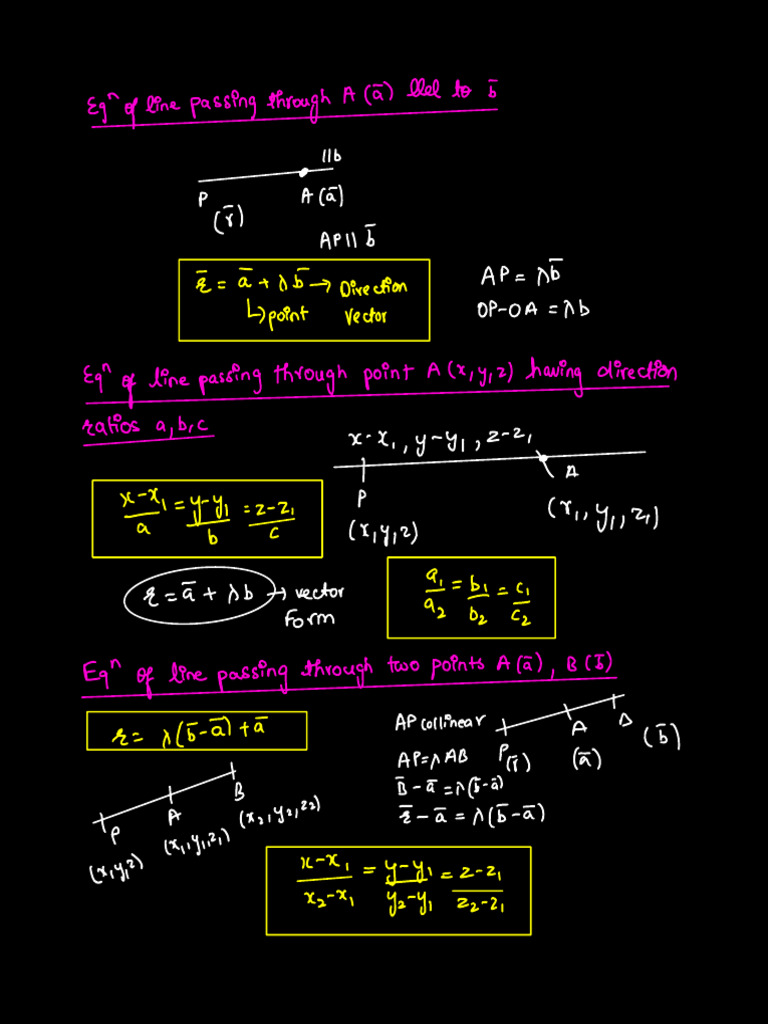 Eqⁿ of line passing through A (ā) llel to b̄
llb
P
A (ā)
(r̄)
AP ll b̄
r̄ = ā + λ b̄ → Direction
↳ point vector
AP = λb̄
OP-OA = λb
Eqⁿ of line passing through point A (x, y, z) having direction
ratios a, b, c
x-x₁, y-y₁, z-z₁
P
A
(x, y, z)
(x₁, y₁, z₁)
x-x₁/a = y-y₁/b = z-z₁/c
r = ā + λb → vector
Form
a₁/a₂ = b₁/b₂ = c₁/c₂
Eqⁿ of line passing through two points A (ā), B (b̄)
r = λ(b̄-ā)+ā
AP collinear
AP = λ AB
B̄-ā = λ(b̄-ā)
r̄-ā = λ(b̄-ā)
P
(r̄)
A
(ā)
B
(b̄)
P
(x, y, z)
A
(x₁, y₁, z₁)
B
(x₂, y₂, z₂)
x-x₁/x₂-x₁ = y-y₁/y₂-y₁ = z-z₁/z₂-z₁